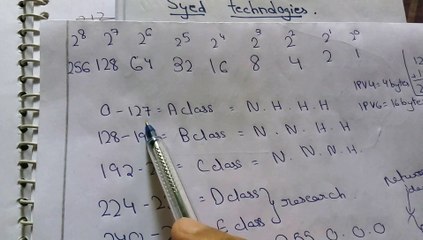 Syed technologies.
2⁸ 2⁷ 2⁶ 2⁵ 2⁴ 2³ 2² 2¹ 2⁰
256 128 64 32 16 8 4 2 1
IPV4 = 4 byte
IPV6 = 16 byte
0 - 127 = A class = N. H. H. H
128 - 19 = B class = N. N. H. H
192 - 2 = C class = N. N. N. H
224 - 2 = D class } research
240 - 2 E class
255 0. 0. 0